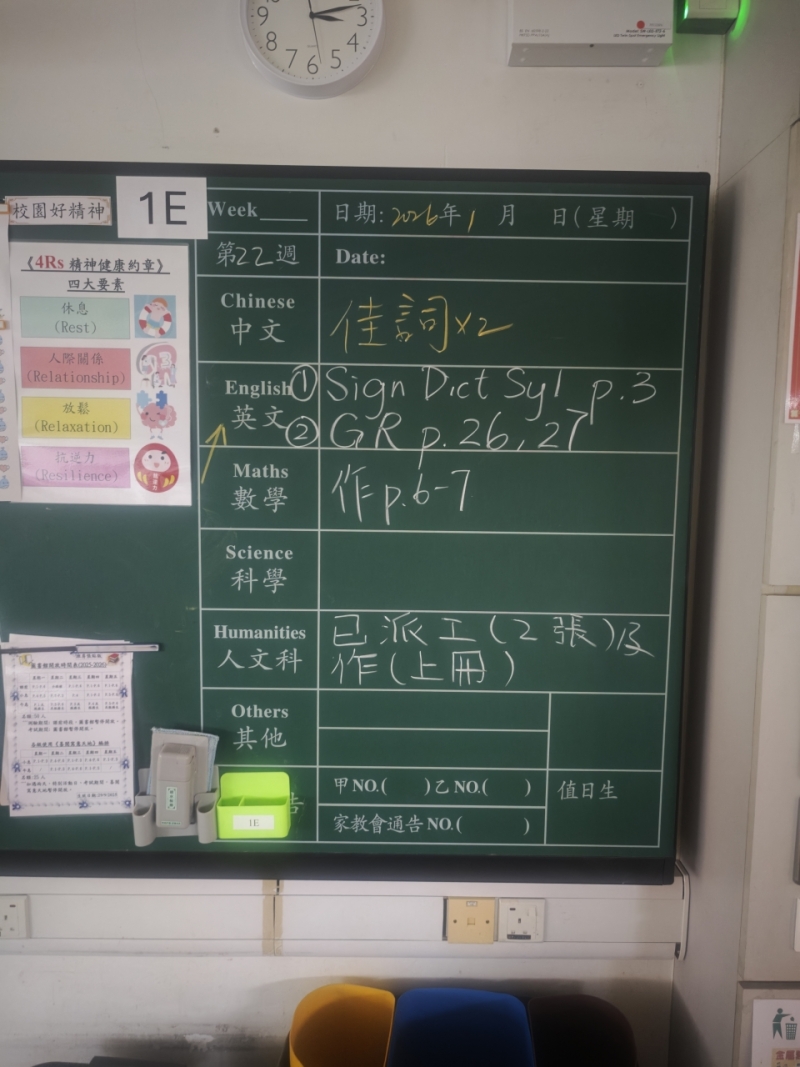 9 8 7 6 5 4 3
校園好精神
1E
Week____
日期: 2026年 1 月 日(星期 )
第22週
Date:
《4Rs 精神健康約章》
四大要素
休息
(Rest)
人際關係
(Relationship)
放鬆
(Relaxation)
抗逆力
(Resilience)
Chinese
中文
佳詞x2
English
英文
① Sign Dict Syl p.3
② GR p.26, 27
Maths
數學
作 p.6-7
Science
科學
Humanities
人文科
已派工(2張)及
作(上冊)
Others
其他
告
甲NO.( )乙NO.( )
家教會通告NO.( )
值日生
1E